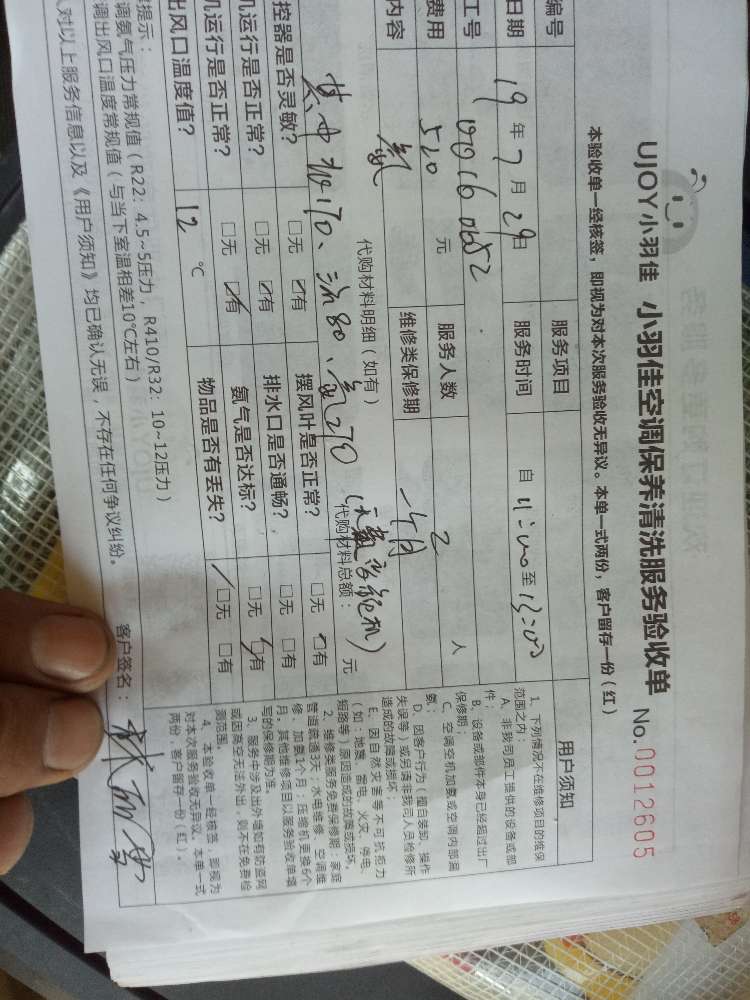 UJOY小羽佳 小羽佳空调保养清洗服务验收单 No.0012605
本验收单一经核签，即视为对本次服务验收无异议。本单一式两份，客户留存一份（红）
编号 服务项目 用户须知
日期 19年7月29日 服务时间 自11:00至13:00
工号 00160652
费用 520 元 服务人数 2 人
内容 氨 维修类保修期 一个月
代购材料明细（如有） 代购材料总额： 元
其中 170、 80、氨270
控器是否灵敏？ □无 □有 摆风叶是否正常？ □无 □有
机运行是否正常？ □无 □有 排水口是否通畅？ □无 □有
机运行是否正常？ □无 □有 氨气是否达标？ □无 □有
出风口温度值？ 12 ℃ 物品是否有丢失？ □无 □有
提示：
调氨气压力常规值（R22：4.5~5压力，R410/R32：10~12压力）
调出风口温度常规值（与当下室温相差10℃左右）
人对以上服务信息以及《用户须知》均已确认无误，不存在任何争议纠纷。
客户签名：
1、下列情况不在维修项目的维保
范围之内：
A、非我司员工提供的设备或部
件；
B、设备或部件本身已经超过出厂
保修期；
C、空调空机加氨或空调内部漏
氨；
D、因客户行为（擅自装卸、操作
失误等）或另请非我司人员检修所
造成的故障或损坏；
E、因自然灾害等不可抗拒力
（如：地震、雷电、火灾、停电、
短路等）原因造成的故障或损坏。
2、维修类服务免费保修期：家庭
管道疏通3天；水电维修、空调维
修、加氨1个月；压缩机更换6个
月；其他维修项目以服务验收单填
写的保修期为准。
3、服务中涉及出外墙如有防盗网
或因高空无法外出，则不在免费检
测范围。
4、本验收单一经核签，即视为
对本次服务验收无异议。本单一式
两份，客户留存一份（红）。